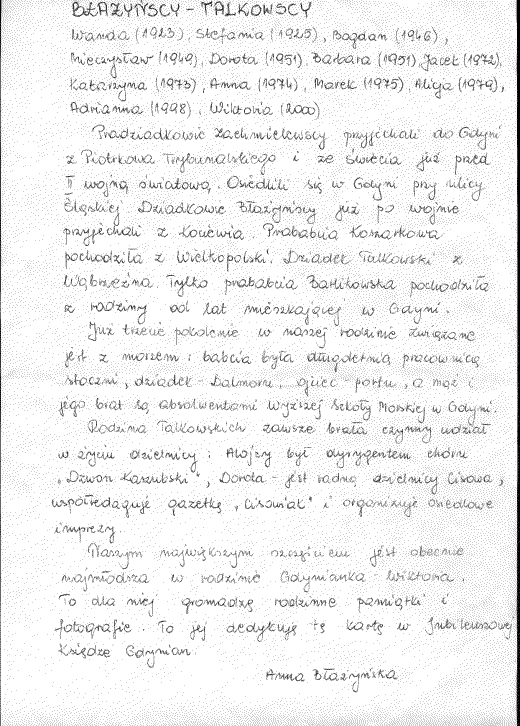 BŁAŻYŃSCY - TALKOWSCY
Wanda (1923), Stefania (1925), Bogdan (1946),
Mieczysław (1949), Dorota (1951), Barbara (1951), Jacek (1972),
Katarzyna (1973), Anna (1974), Marek (1975), Alicja (1979),
Adrianna (1998), Wiktoria (2000)
Pradziadkowie Zachmielewscy przyjechali do Gdyni
z Piotrkowa Trybunalskiego i ze Świecia już przed
II wojną światową. Osiedlili się w Gdyni przy ulicy
Śląskiej. Dziadkowie Błażyńscy już po wojnie
przyjechali z Kociewia. Prababcia Koszarkowa
pochodziła z Wielkopolski. Dziadek Talkowski z
Wąbrzeźna. Tylko prababcia Bartikowska pochodziła
z rodziny od lat mieszkającej w Gdyni.
Już trzecie pokolenie w naszej rodzinie związane
jest z morzem: babcia była długoletnią pracownicą
stoczni, dziadek - Dalmoru, ojciec - portu, a mąż i
jego brat są absolwentami Wyższej Szkoły Morskiej w Gdyni.
Rodzina Talkowskich zawsze brała czynny udział
w życiu dzielnicy: Alojzy był dyrygentem chóru
„Dzwon Kaszubski", Dorota - jest radną dzielnicy Cisowa,
współredaguje gazetkę „Cisowiak" i organizuje osiedlowe
imprezy.
Naszym największym szczęściem jest obecnie
najmłodsza w rodzinie Gdynianka Wiktoria.
To dla niej gromadzę rodzinne pamiątki i
fotografie. To jej dedykuję tę kartę w Jubileuszowej
Księdze Gdynian.
Anna Błażyńska